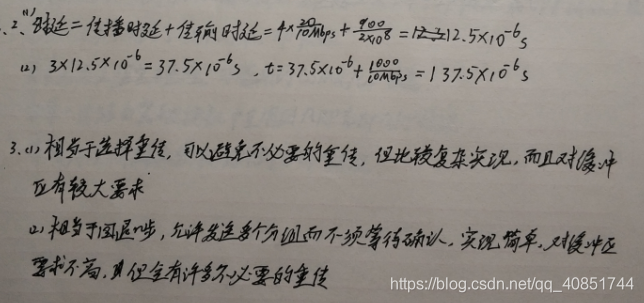 2、(1) 总时延=传播时延+传输时延=4×20/10Mbps+900/2×10^8=12.5×10^-6 s
(2) 3×12.5×10^-6=37.5×10^-6 s，t=37.5×10^-6+1000/10Mbps=137.5×10^-6 s
3.(1) 相当于选择重传，可以避免不必要的重传，但比较复杂实现，而且对缓冲
区有较大要求
(2) 相当于回退n步，允许发送多个分组而不须等待确认，实现简单，对缓冲区
要求不高，但会有许多不必要的重传
https://blog.csdn.net/qq_40851744